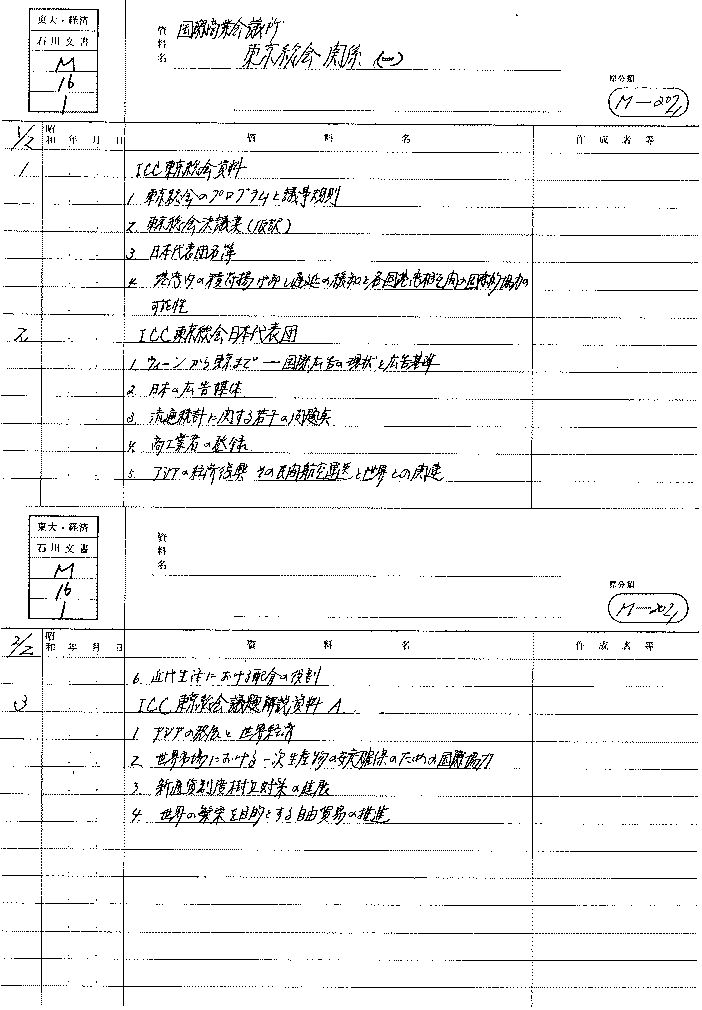 東大・経済
石川文書
M
16
1
資料名 国際商業会議所
東京総会関係 (一)
原分類
M-202,
1/2 昭和 年 月 日 資料名 作成者等
1 ICC東京総会資料
1. 東京総会のプログラムと議事規則
2. 東京総会決議集(仮訳)
3. 日本代表団名簿
4. 港湾内の積荷揚げ卸し遅延の緩和と各国港湾相互間の国際的協力の
可能性
2. ICC東京総会日本代表団
1. ウィーンから東京まで ― 国際広告の現状と広告基準
2. 日本の広告媒体
3. 流通統計に関する若干の問題点
4. 商工業者の登録
5. アジアの経済復興 その民間航空運送と世界との関連
東大・経済
石川文書
M
16
1
資料名
原分類
M-202,
2/2 昭和 年 月 日 資料名 作成者等
6. 近代生活における配分の役割
3 ICC東京総会議題解説資料 A
1. アジアの発展と世界経済
2. 世界市場における一次生産物の安定確保のための国際協力
3. 新通貨制度樹立対策の進展
4. 世界の繁栄を目的とする自由貿易の推進